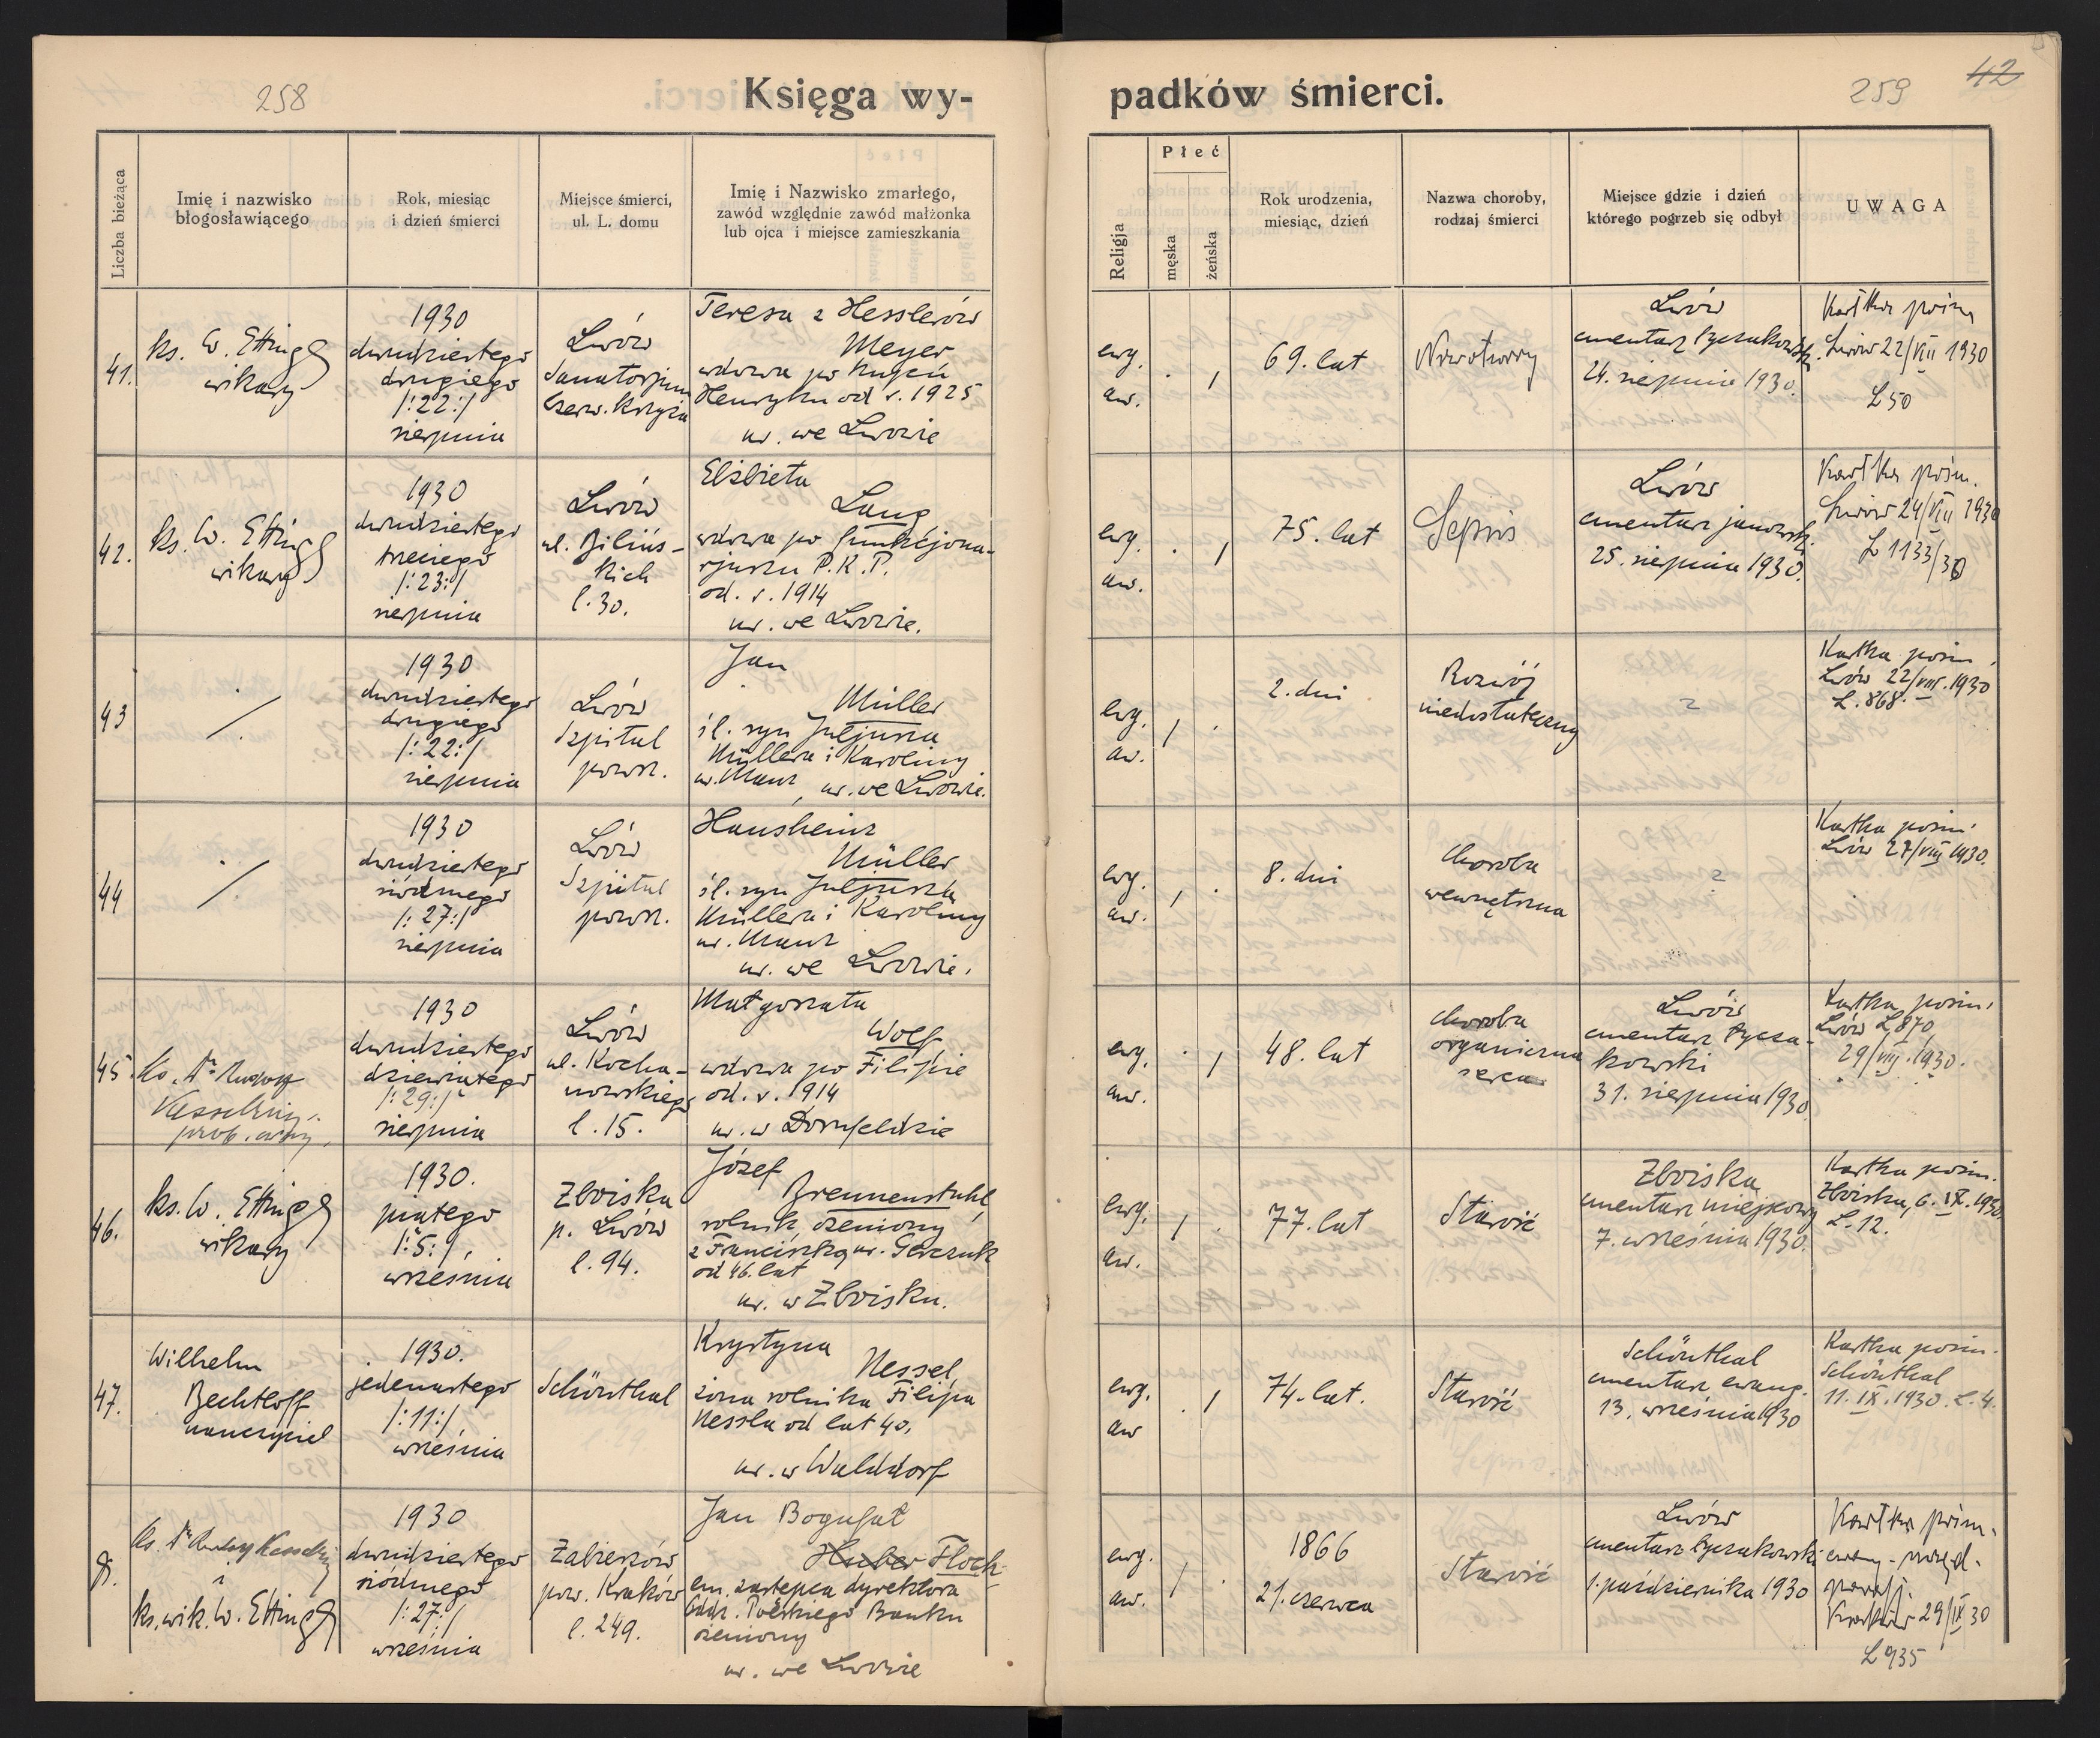 258
Księga wy-
padków śmierci.
259
42
Liczba bieżąca
Imię i nazwisko
błogosławiącego
Rok, miesiąc
i dzień śmierci
Miejsce śmierci,
ul. L. domu
Imię i Nazwisko zmarłego,
zawód względnie zawód małżonka
lub ojca i miejsce zamieszkania
Religja
Płeć
męska
żeńska
Rok urodzenia,
miesiąc, dzień
Nazwa choroby,
rodzaj śmierci
Miejsce gdzie i dzień
którego pogrzeb się odbył
UWAGA
41.
ks. W. Etting
wikary
1930
dwudziestego
drugiego
/:22:/
sierpnia
Lwów
Sanatorjum
Czerw. Krzyża
Teresa z Hesslerów
Meyer
wdowa po
Henryku od r. 1925
ur. we Lwowie
ewg.
aw.
69. lat
Nowotwory
Lwów
cmentarz Łyczakowski
24. sierpnia 1930.
Kartka pośm.
Lwów 22/VIII 1930
L 50
42.
ks. W. Etting
wikary
1930
dwudziestego
trzeciego
/:23:/
sierpnia
Lwów
ul. Bilińs-
kich
l. 30.
Elżbieta
Lang
wdowa po funkcjona-
rjuszu P.K.P.
od. r. 1914
ur. we Lwowie.
ewg.
aw.
75. lat
Sepsis
Lwów
cmentarz janowski
25. sierpnia 1930.
Kartka pośm.
Lwów 24/VIII 1930
L 1133/30
43
1930
dwudziestego
drugiego
/:22:/
sierpnia
Lwów
Szpital
powsz.
Jan
Müller
śl. syn Juljusza
Müllera i Karoliny
ur. Manz, ur. we Lwowie.
ewg.
aw.
2. dni
Rozwój
niedostateczny
?
Kartka pośm.
Lwów 22/VIII.1930
L. 868.
44
1930
dwudziestego
siódmego
/:27:/
sierpnia
Lwów
Szpital
powsz.
Hansheinz
Müller
śl. syn Juljusza
Müllera i Karoliny
ur. Manz
ur. we Lwowie.
ewg.
aw.
8. dni
choroba
wewnętrzna
?
Kartka pośm.
Lwów 27/VIII 1930.
45.
ks. Dr Rudolf
Kesselring
prob. ewg.
1930
dwudziestego
dziewiątego
/:29:/
sierpnia
Lwów
ul. Kocha-
nowskiego
l. 15.
Małgorzata
Wolf
wdowa po Filipie
od. r. 1914
ur. w Dornfeldzie
ewg.
aw.
48. lat
choroba
organiczna
serca
Lwów
cmentarz Łycza-
kowski
31. sierpnia 1930
Kartka pośm.
Lwów L 870
29/VIII.1930.
46.
ks. W. Etting
wikary
1930.
piątego
/:5:/
września
Zboiska
p. Lwów
l. 94.
Józef
Brennenstuhl,
rolnik, ożeniony
z Franciszką ur. Gawczuk
od 46. lat
ur. w Zboisku.
ewg.
aw.
77. lat
Starość
Zboiska
cmentarz miejscowy
7. września 1930.
Kartka pośm.
Zboiska, 6. IX. 1930.
L. 12.
47.
Wilhelm
Bechtloff
nauczyciel
1930.
jedenastego
/:11:/
września
Schönthal
Krystyna
Nessel,
żona rolnika Filipa
Nessla od lat 40.
ur. w Walddorf
ewg.
aw
74. lat.
Starość
Schönthal
cmentarz ewang.
13. września 1930
Kartka pośm.
Schönthal
11. IX. 1930. L. 4.
ks. Dr Rudolf Kesselring
i
ks. wik. W. Etting
1930
dwudziestego
siódmego
/:27:/
września
Zabierzów
pow. Kraków
l. 249.
Jan Bogufał
Huber Floch
em. zastępca dyrektora
Oddz. Polskiego Banku
ożeniony
ur. we Lwowie
ewg.
aw.
1866
21. czerwca
Starość
Lwów
cmentarz Łyczakowski
1. października 1930
Kartka pośm.
ewang. urzęd.
paraf.
Kraków 29/IX 30
L 935